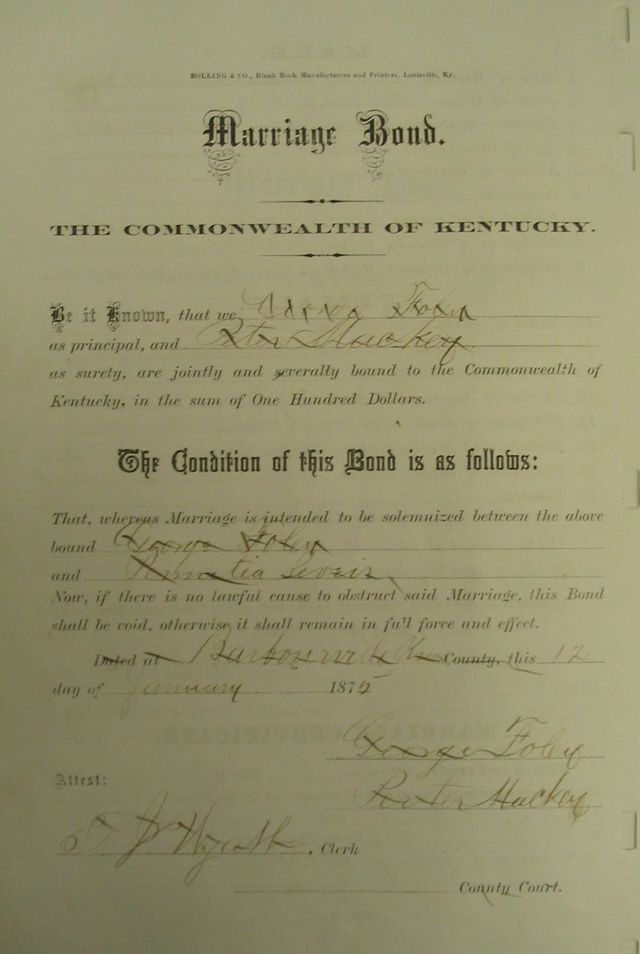 BOLLING & CO., Blank Book Manufacturers and Printers, Louisville, Ky.
Marriage Bond.
THE COMMONWEALTH OF KENTUCKY.
Be it Known, that we George Foley
as principal, and Peter Mackey
as surety, are jointly and severally bound to the Commonwealth of
Kentucky, in the sum of One Hundred Dollars.
The Condition of this Bond is as follows:
That, whereas Marriage is intended to be solemnized between the above
bound George Foley
and
Now, if there is no lawful cause to obstruct said Marriage, this Bond
shall be void, otherwise it shall remain in full force and effect.
Dated at Barbourville County, this 12
day of January 1875
George Foley
Attest:
Peter Mackey
T J Wyatt, Clerk
County Court.